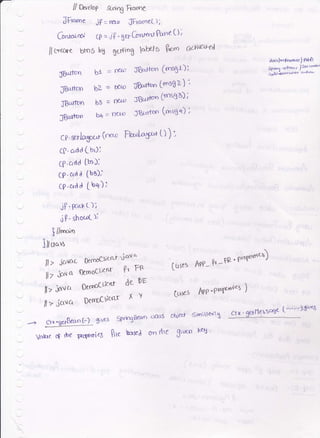 // Develop swing Frame
JFrame jf = new JFrame();
Container cp = jf.getContentPane();
// create btns by getting labels from
JButton b1 = new JButton (msg1);
JButton b2 = new JButton (msg2);
JButton b3 = new JButton (msg3);
JButton b4 = new JButton (msg4);
cp.setLayout(new FlowLayout());
cp.add(b1);
cp.add(b2);
cp.add(b3);
cp.add(b4);
jf.pack();
jf.show();
} //main
} //class
//> javac DemoClient.java
//> java DemoClient fr FR (uses App_fr_FR.properties)
//> java DemoClient de DE
//> java DemoClient x y (uses App.properties)
→ ctx.getBean(-) gives SpringBean class object similarly ctx.getMessage(------) gives
value of the properties file based on the given key.